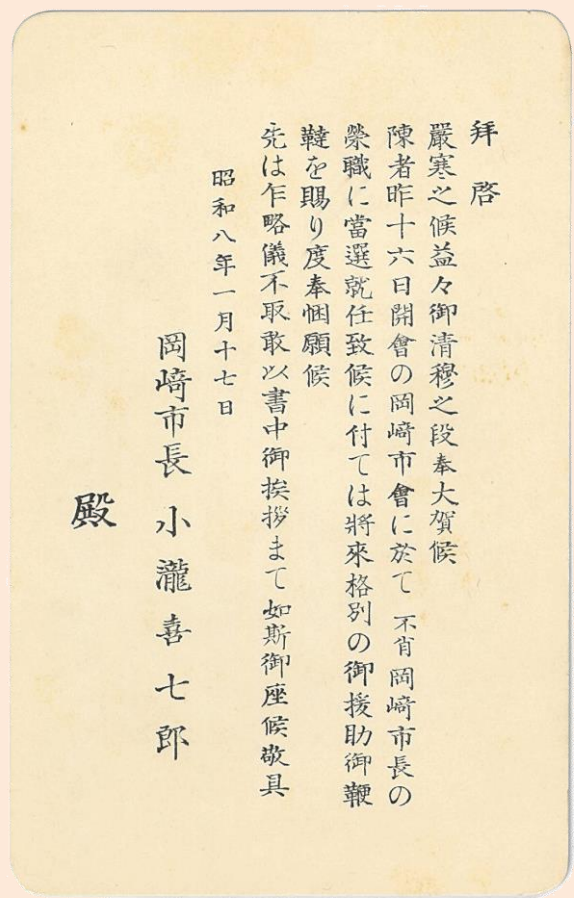 拜啓
嚴寒之候益々御淸穆之段奉大賀候
陳者昨十六日開會の岡﨑市會に於て不肖岡﨑市長の
榮職に當選就任致候に付ては將來格別の御援助御鞭
韃を賜り度奉悃願候
先は乍略儀不取敢以書中御挨拶まて如斯御座候敬具
昭和八年一月十七日
岡﨑市長 小瀧喜七郎
殿